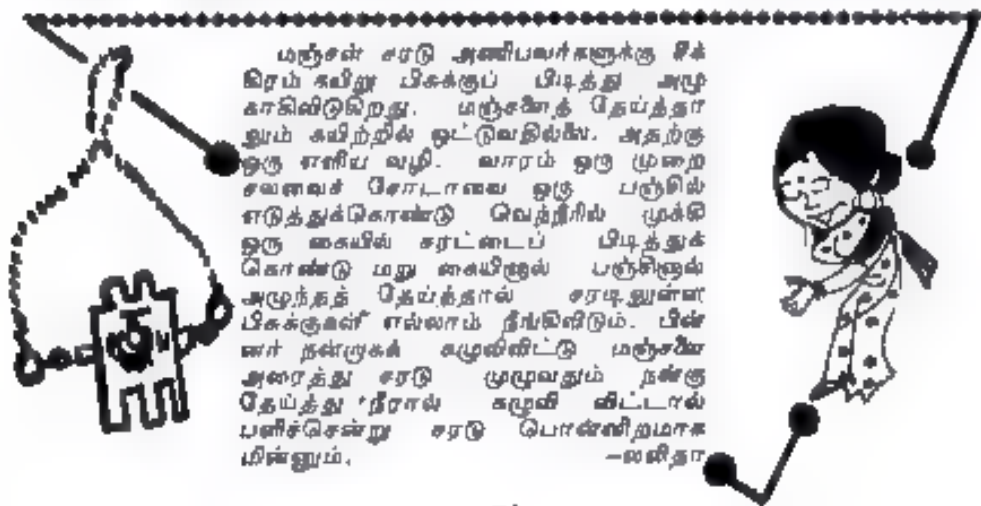 மஞ்சள் சரடு அணிபவர்களுக்கு சீக்
கிரம் கயிறு பிசுக்குப் பிடித்து அழு
காகிவிடுகிறது. மஞ்சளைத் தேய்த்தா
லும் கயிற்றில் ஒட்டுவதில்லை. அதற்கு
ஒரு எளிய வழி. வாரம் ஒரு முறை
சலவைச் சோடாவை ஒரு பஞ்சில்
எடுத்துக்கொண்டு வெந்நீரில் முக்கி
ஒரு கையில் சரட்டைப் பிடித்துக்
கொண்டு மறு கையினால் பஞ்சினால்
அழுந்தத் தேய்த்தால் சரடிலுள்ள
பிசுக்குகள் எல்லாம் நீங்கிவிடும். பின்
னர் நன்றாகக் கழுவிவிட்டு மஞ்சளை
அரைத்து சரடு முழுவதும் நன்கு
தேய்த்து நீரால் கழுவி விட்டால்
பளிச்சென்று சரடு பொன்னிறமாக
மின்னும். –லலிதா